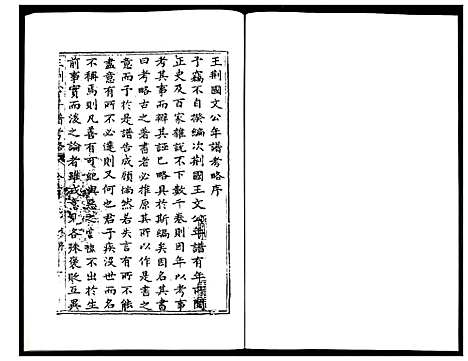 王荆國文公年譜考略序
予竊不自揆編次荆國王文公年譜有年所閱
正史及百家雜說不下數千卷則因年以考事
考其事而辨其誣已略具於斯編矣因名其書
曰考略古之著書者必推原其所以作是書之
意而予於是譜告成顧惝然若失言有所不能
盡意有所不必達則又何也君子疾沒世而名
不稱焉則凡善有可紀與惡之當褫不出於生
前事實而後之論者雖或意見各殊褒貶互異